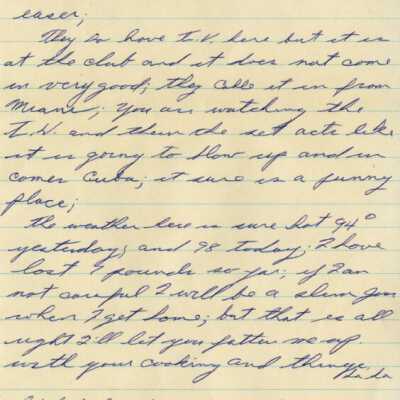 easer;
They do have T.V. here but it is
at the club and it does not come
in very good; they cable it in from
Miami; you are watching the
T.V. and then the set acts like
it is going to blow up and in
comes Cuba; it sure is a funny
place;
the weather here is sure hot 94°
yesterday; and 98 today; I have
lost 9 pounds so far; if I am
not careful I will be a slim Jim
when I get home; but that is all
right I'll let you fatten me up
with your cooking and things;